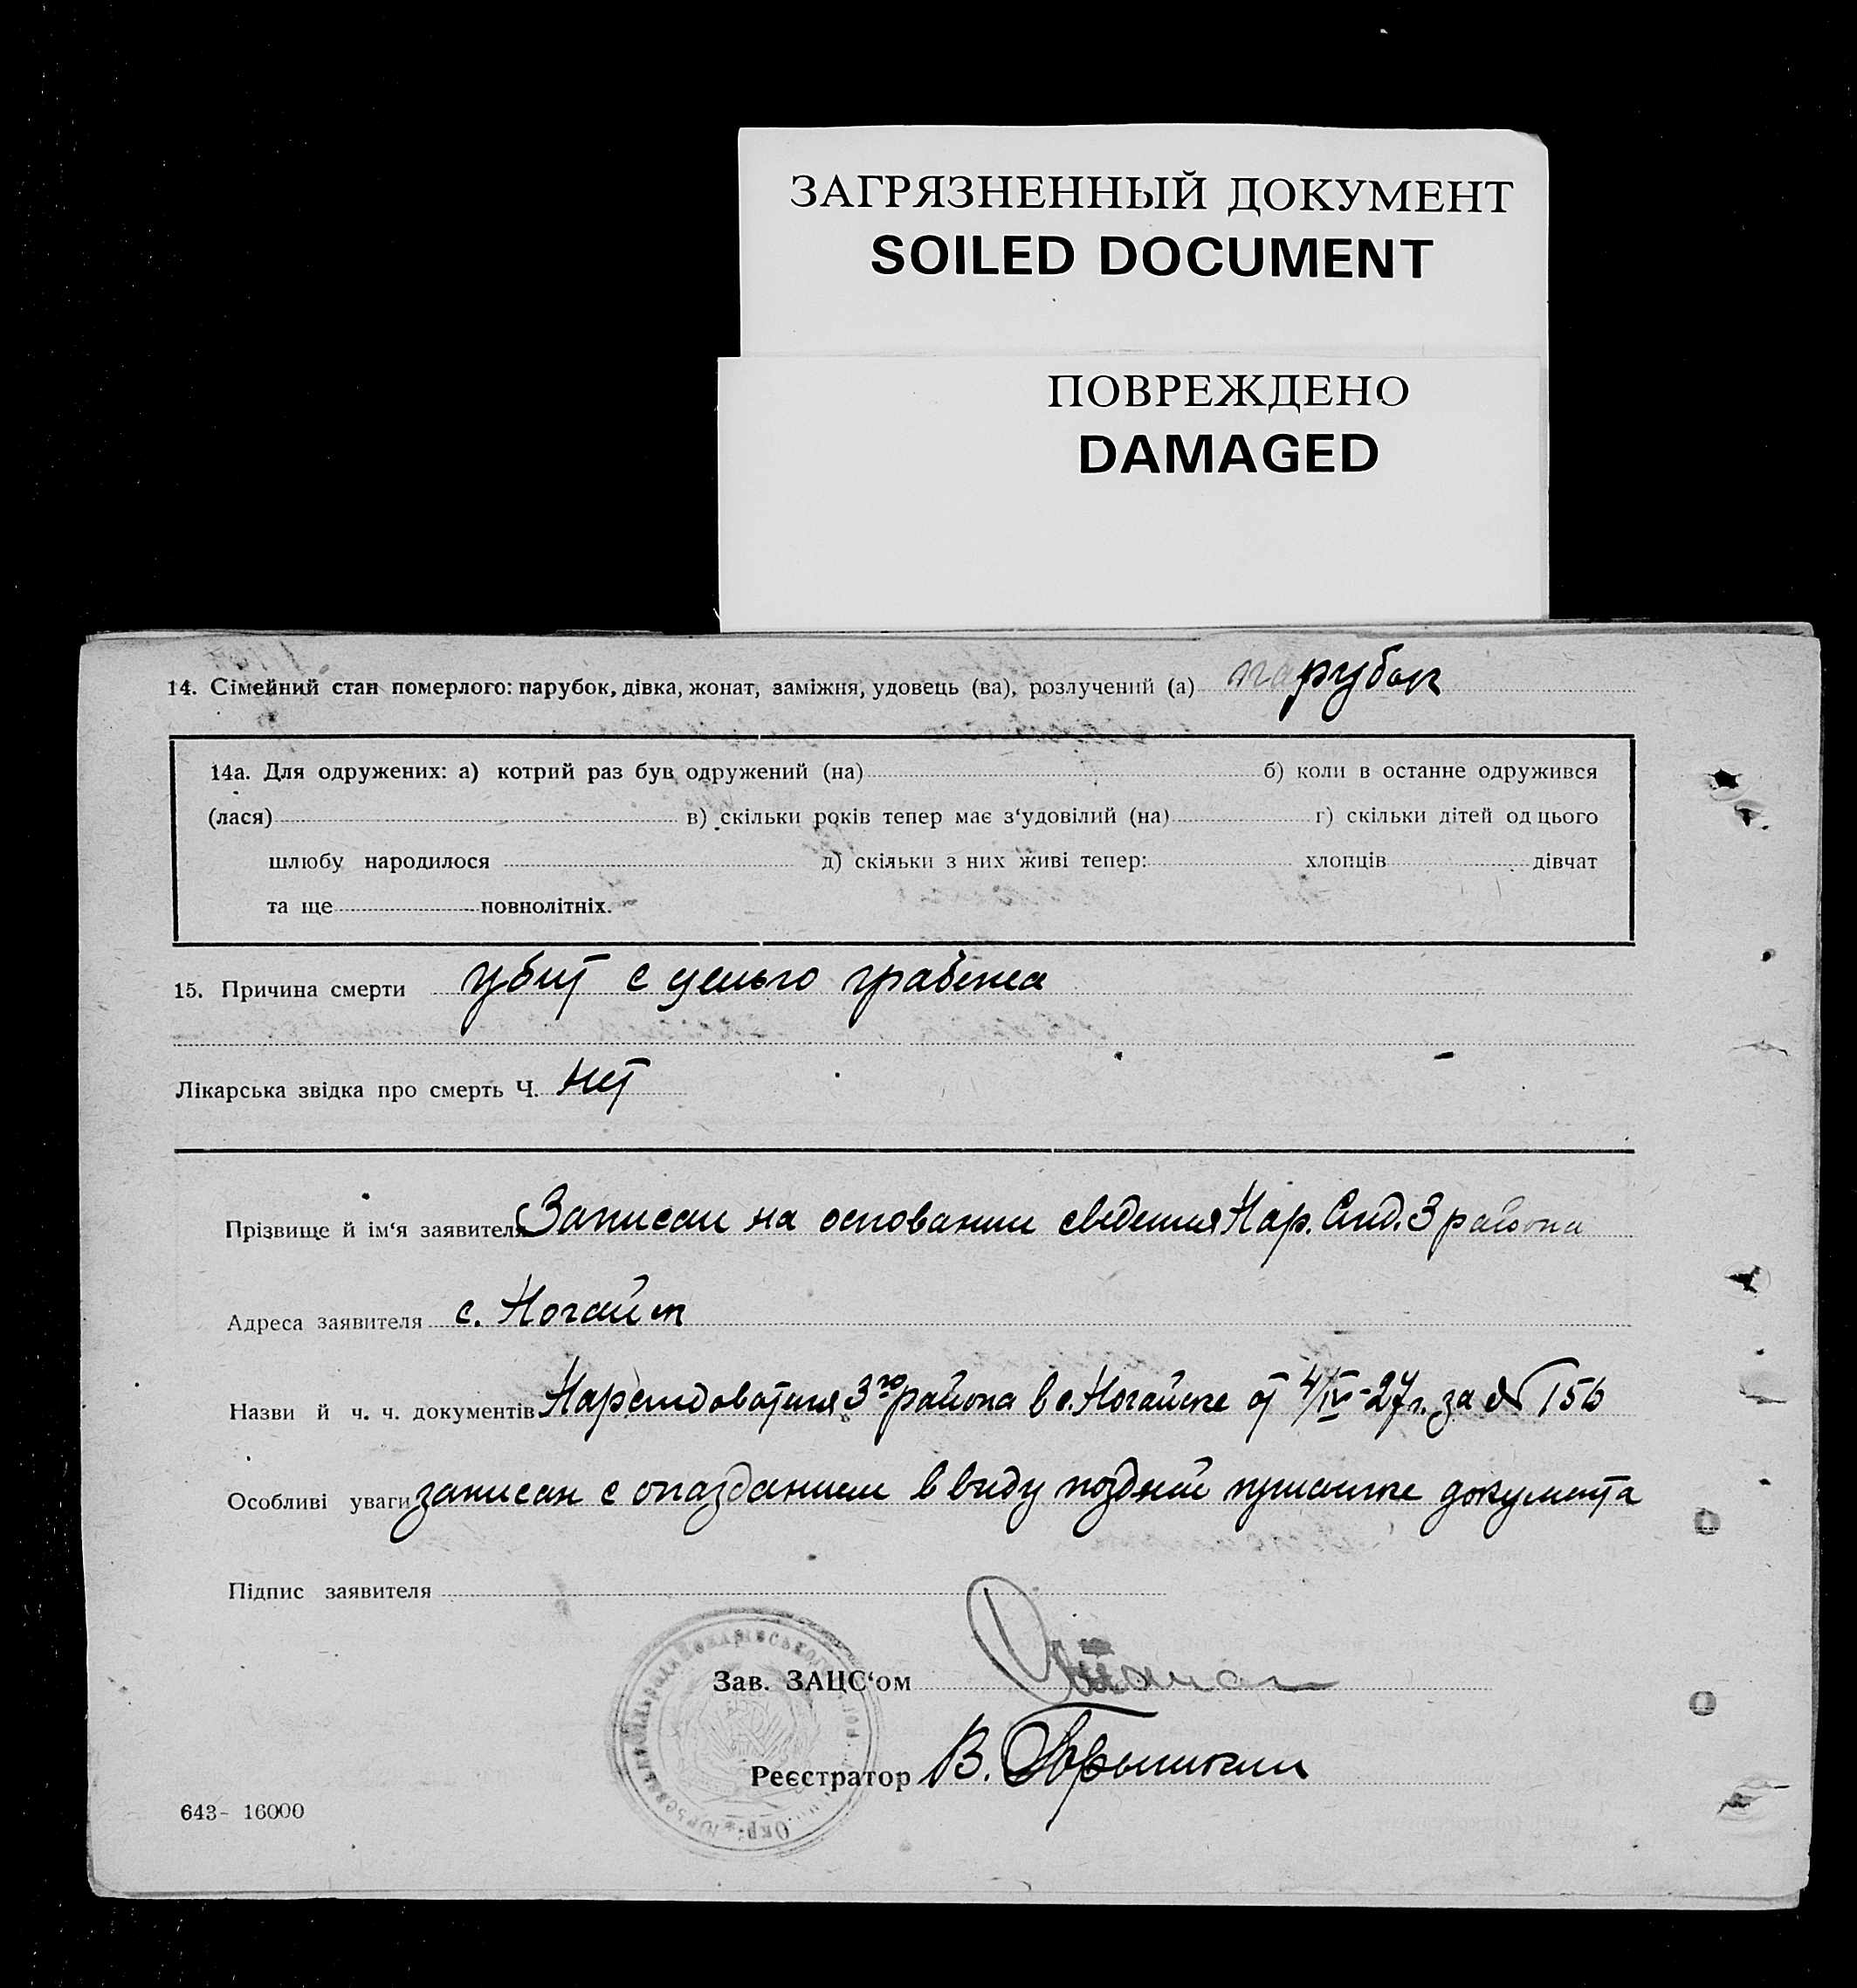 ЗАГРЯЗНЕННЫЙ ДОКУМЕНТ
SOILED DOCUMENT
ПОВРЕЖДЕНО
DAMAGED
14. Сімейний стан померлого: парубок, дівка, жонат, заміжня, удовець (ва), розлучений (а) парубок
14а. Для одружених: а) котрий раз був одружений (на) б) коли в останне одружився
(лася) в) скільки років тепер має з‘удовілий (на) г) скільки дітей од цього
шлюбу народилося д) скільки з них живі тепер: хлопців дівчат
та ще повнолітніх.
15. Причина смерти убит с целью грабежа
Лікарська звідка про смерть Ч. нет
Прізвище й ім‘я заявителя Записан на основании сведения Нар. След. 3 района
Адреса заявителя с. Ногайск
Назви й ч. ч. документів Нарследователя 3го района в с. Ногайске от 4/IV-27 г. за № 156
Особливі уваги записан с опазданием в виду поздней присылке документа
Підпис заявителя
Зав. ЗАЦС‘ом
Реєстратор В.
643- 16000